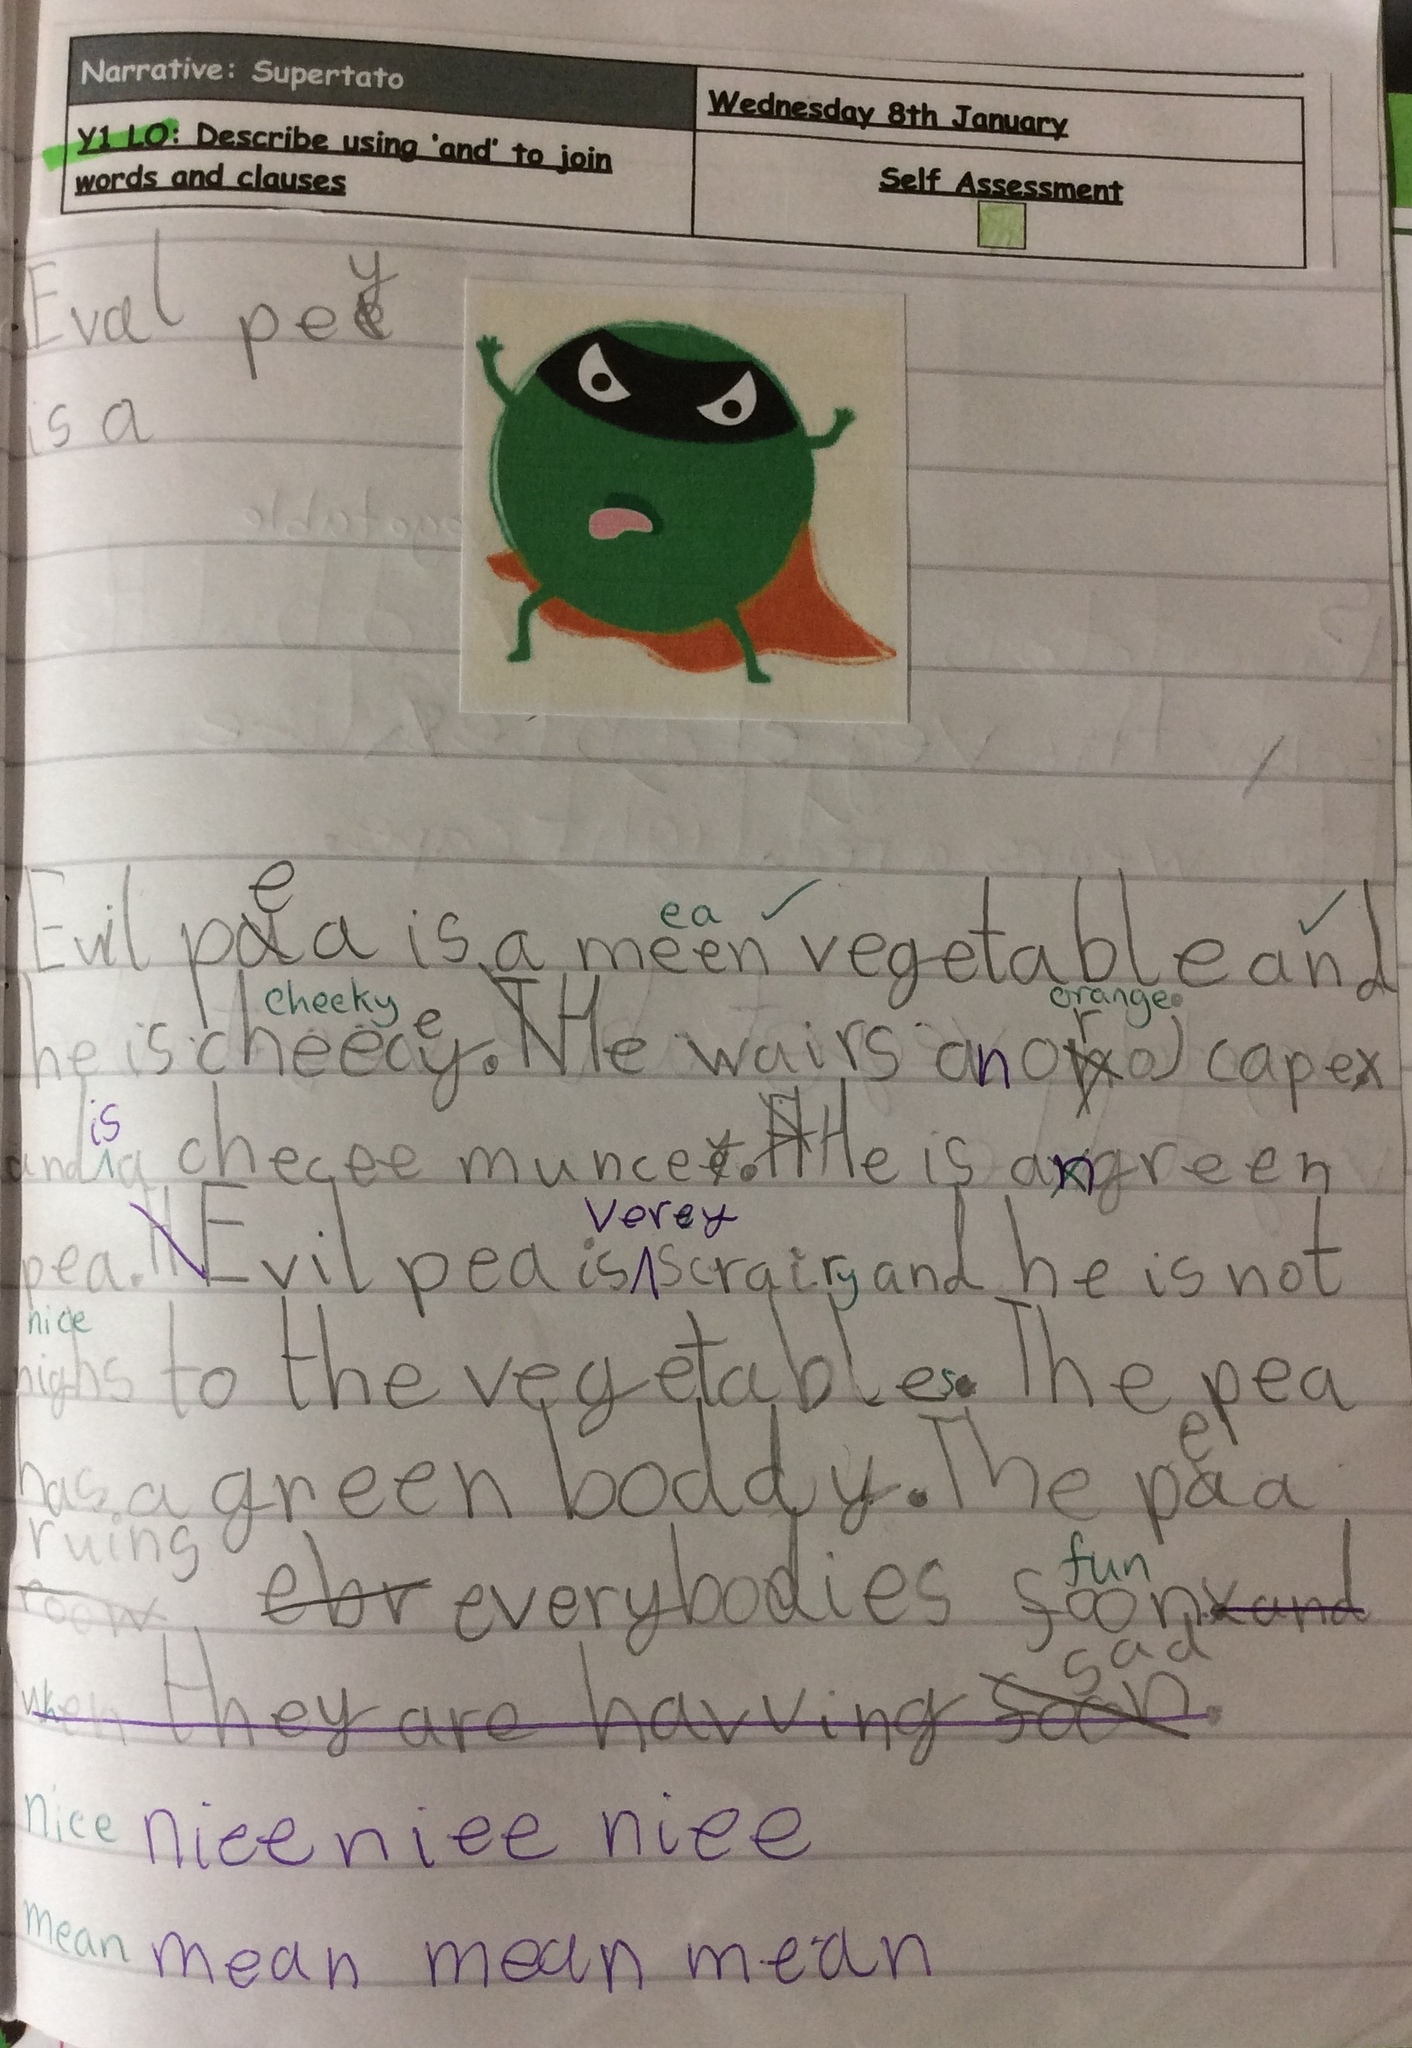 Narrative: Supertato
Wednesday 8th January
Y1 LO: Describe using 'and' to join
words and clauses
Self Assessment
Eval pey
is a
Evil pea is a meen vegetable and
ea
he is cheecey. He wairs an or capex
cheeky
orange
and is a checee munce. He is a green
pea. Evil pea is verey scrairy and he is not
nice
nighs to the vegetables. The pea
has a green boddy. The pea
ruing
room ebr everybodies soon and
fun
when they are havving soon sad.
nice nice niee niee
mean mean mean mean